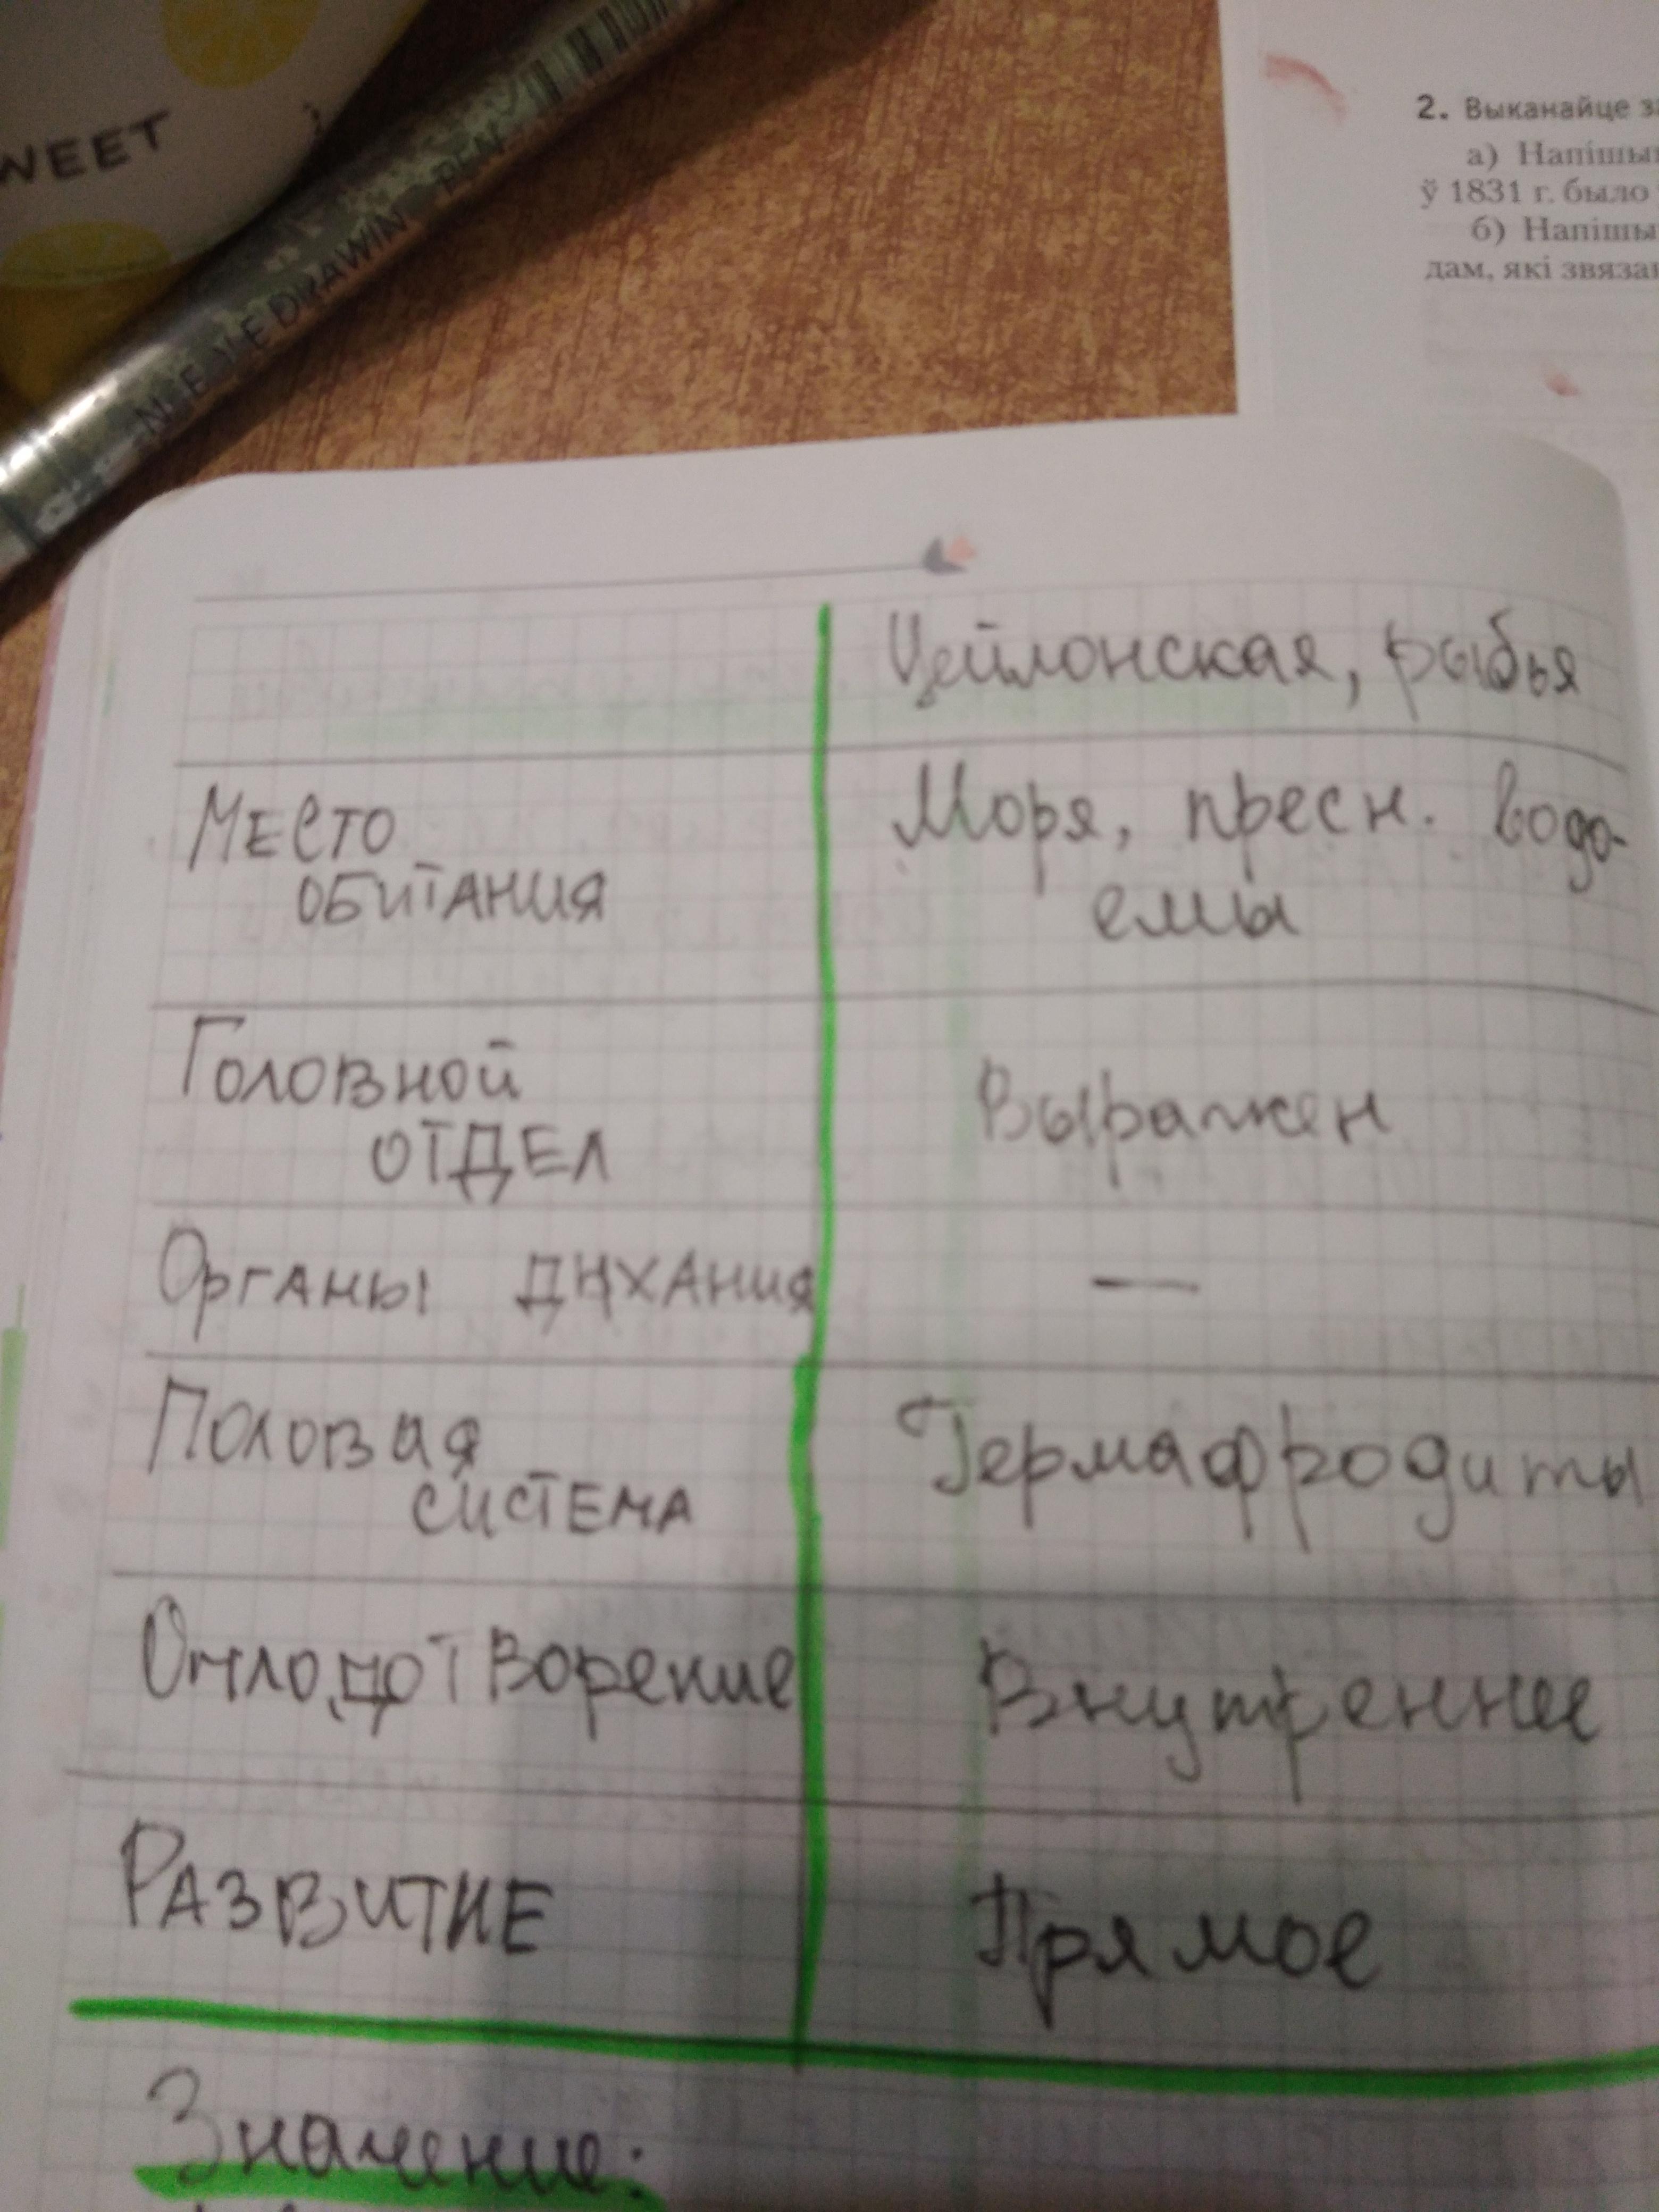 WEET
DRAWIN PEN
2. Выканайце за
а) Напішы
ў 1831 г. было
б) Напішы
дам, які звяза
Цейлонская, рыбья
Место
обитания
Моря, пресн. водо-
емы
Головной
отдел
Выражен
Органы дыхания
—
Половая
система
Гермафродиты
Оплодотворение
Внутреннее
Развитие
Прямое
Значение: